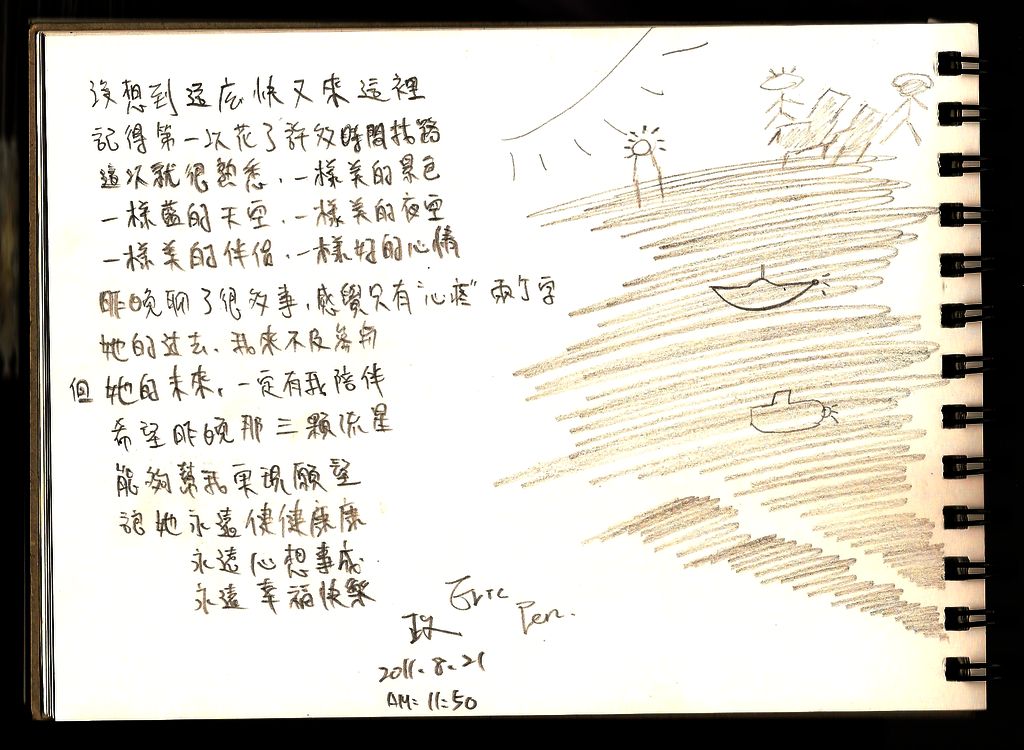 沒想到這麼快又來這裡
記得第一次花了許多時間找路
這次就很熟悉．一樣美的景色
一樣藍的天空．一樣美的夜空
一樣美的伴侶．一樣好的心情
昨晚聊了很多事，感覺只有"心疼"兩个字
她的过去、我來不及參與
但她的未來，一定有我陪伴
希望昨晚那三顆流星
能夠幫我實現願望
讓她永遠健健康康
永遠心想事成
永遠幸福快樂
Eric
Pen.
政
2011.8.21
AM: 11:50